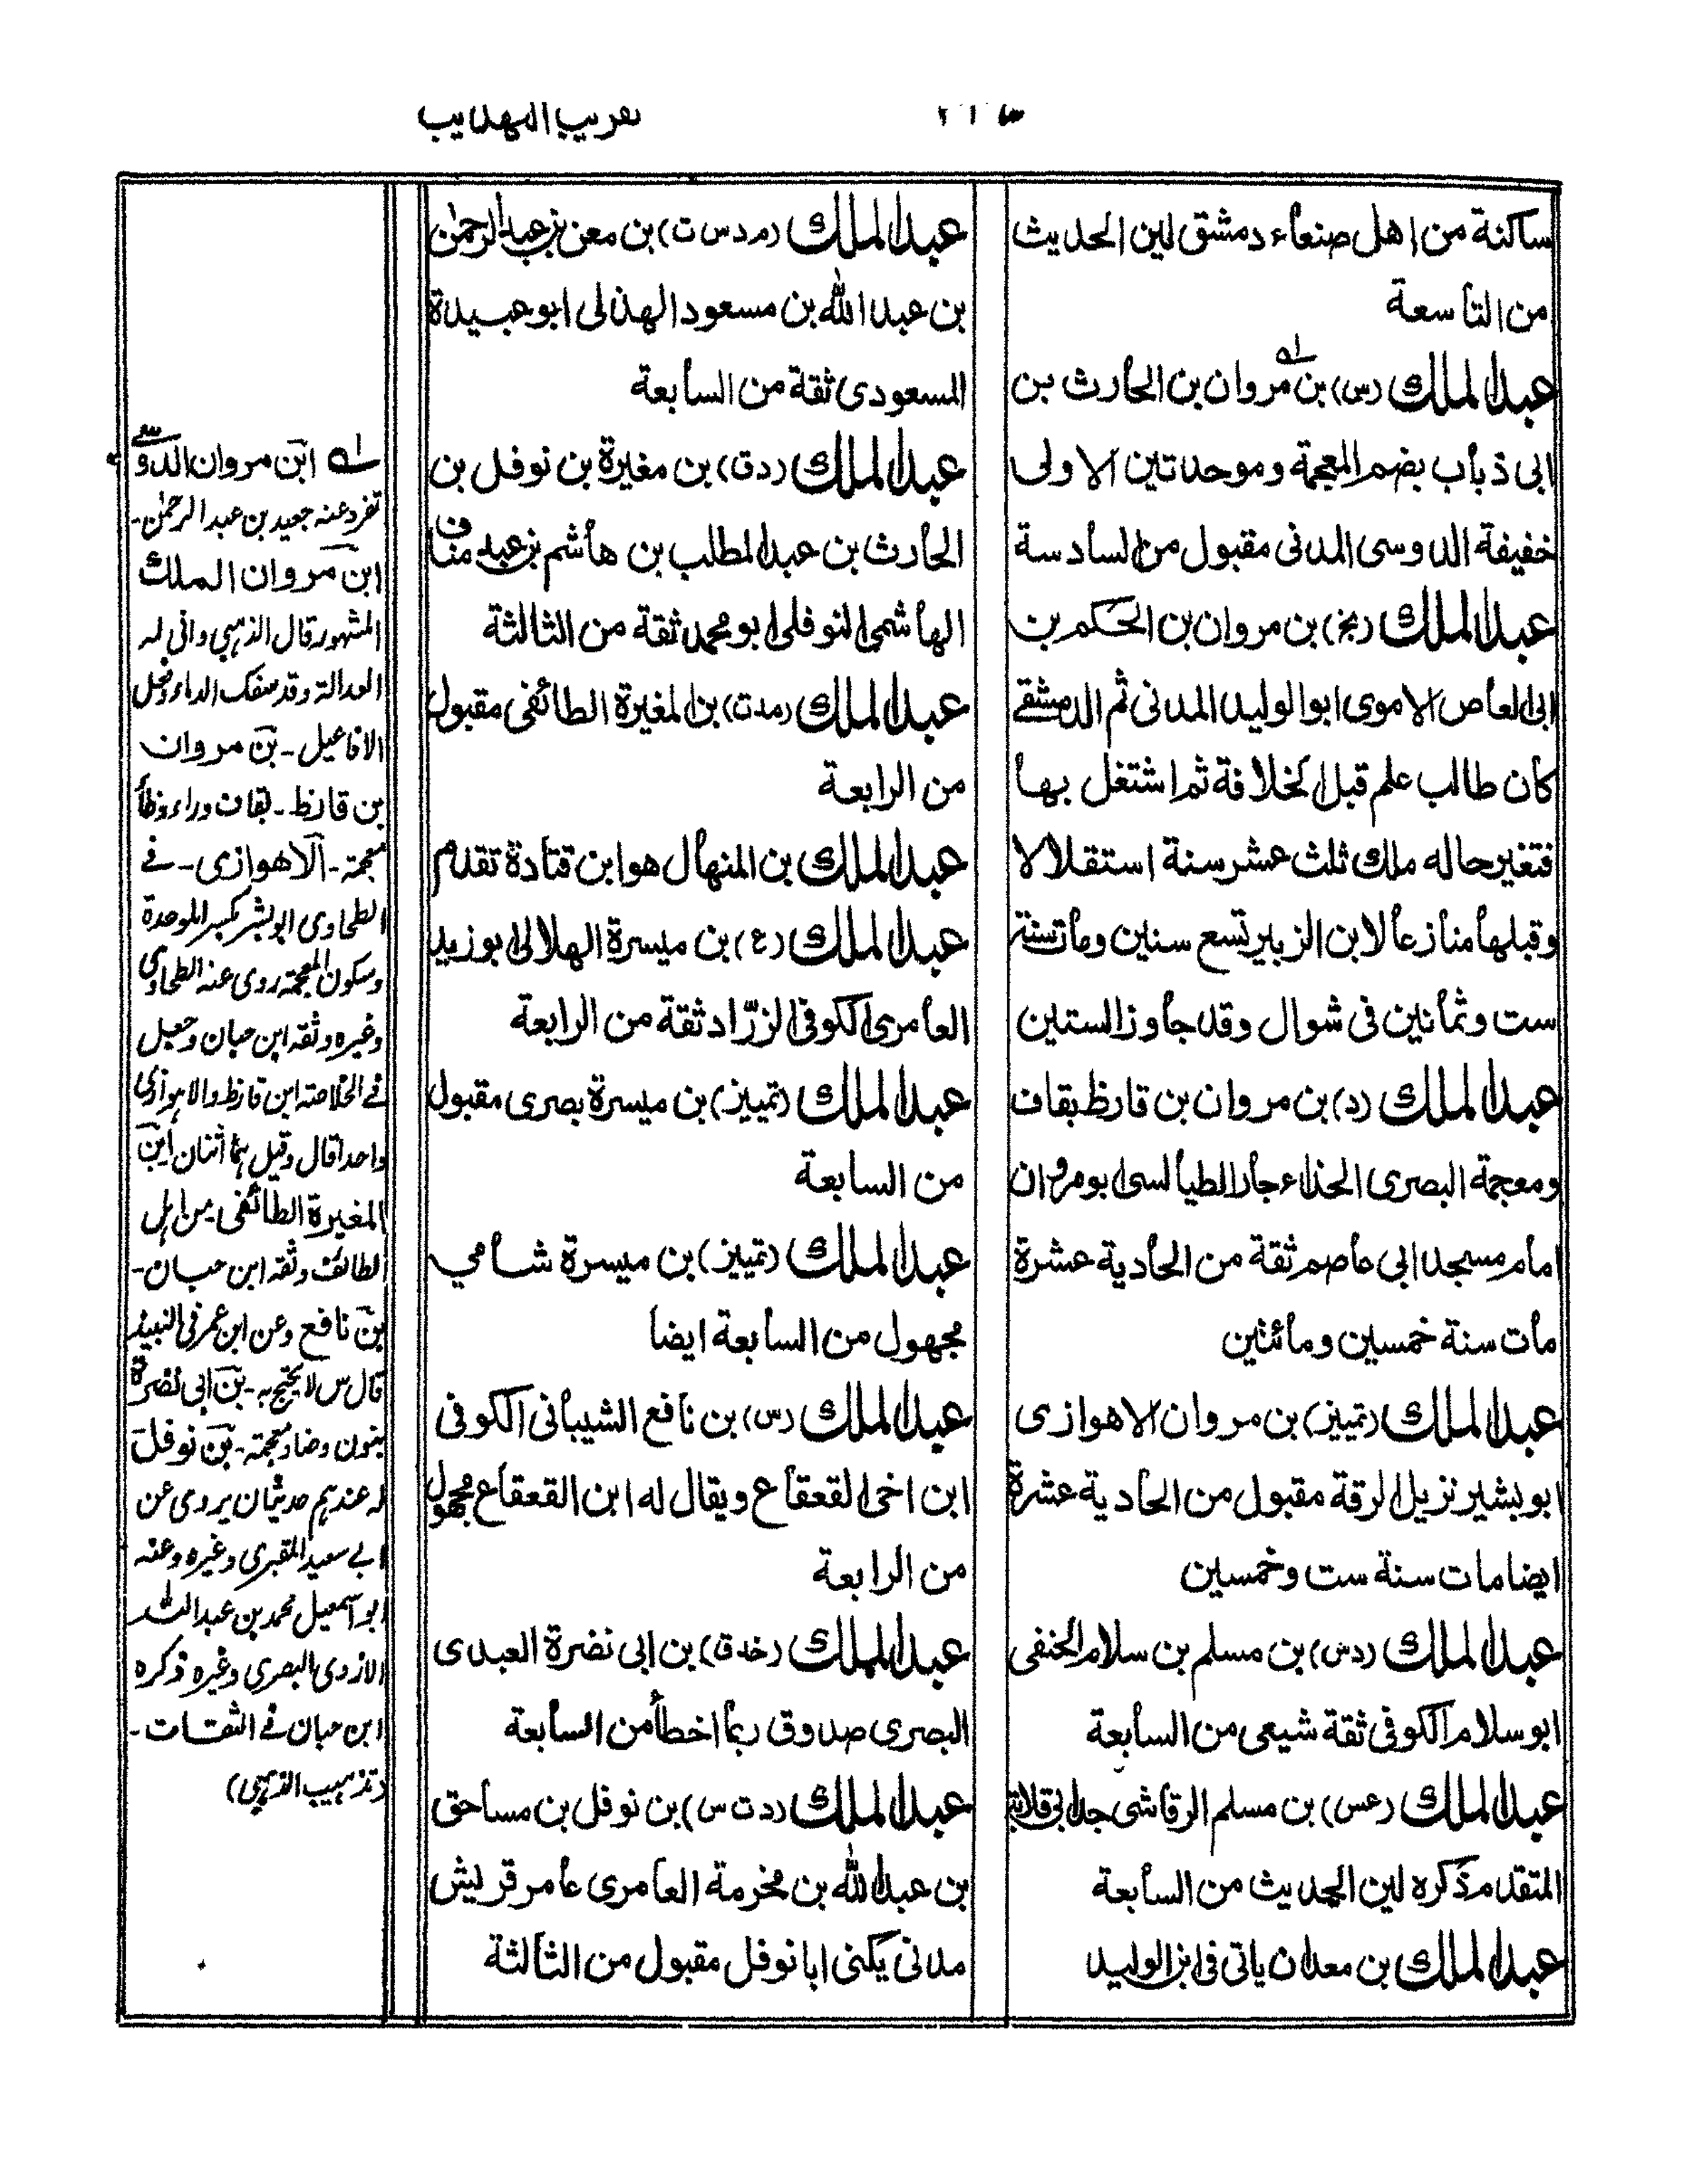 تقريب التهذيب
ساكنة من اهل صنعاء دمشق لين الحديث
من التاسعة
عبد الملك (س) بن مروان بن الحارث بن
ابى ذباب بضم المعجمة وموحدتين الاولى
خفيفة الدوسى المدنى مقبول من السادسة
عبد الملك (بخ) بن مروان بن الحكم بن
ابى العاص الاموى ابو الوليد المدنى ثم الدمشقے
كان طالب علم قبل الخلافة ثم اشتغل بها
فتغير حاله ملك ثلث عشر سنة استقلالا
وقبلها منازعا لابن الزبير تسع سنين ومات سنة
ست وثمانين فى شوال وقد جاوز الستين
عبد الملك (د) بن مروان بن قارظ بقاف
ومعجمة البصرى الحذاء جار الطيالسى ابو مروان
امام مسجد ابى عاصم ثقة من الحادية عشرة
مات سنة خمسين ومائتين
عبد الملك (تمييز) بن مروان الاهوازى
ابو بشير نزيل الرقة مقبول من الحادية عشرة
ايضا مات سنة ست وخمسين
عبد الملك (دس) بن مسلم بن سلام الحنفى
ابو سلام الكوفى ثقة شيعى من السابعة
عبد الملك (عس) بن مسلم الرقاشى جد ابى قلابة
المتقدم ذكره لين الحديث من السابعة
عبد الملك بن معدان ياتى فى ابن الوليد
عبد الملك (م د س ت) بن معن بن عبد الرحمٰن
بن عبد الله بن مسعود الهذلى ابو عبيدة
المسعودى ثقة من السابعة
عبد الملك (دق) بن مغيرة بن نوفل بن
الحارث بن عبد المطلب بن هاشم بن عبد مناف
الهاشمى النوفلى ابو محمد ثقة من الثالثة
عبد الملك (مدت) بن المغيرة الطائفى مقبول
من الرابعة
عبد الملك بن المنهال هو ابن قتادة تقدم
عبد الملك (ع) بن ميسرة الهلالى ابو زيد
العامرى الكوفى الزرّاد ثقة من الرابعة
عبد الملك (تمييز) بن ميسرة بصرى مقبول
من السابعة
عبد الملك (تمييز) بن ميسرة شامي
مجهول من السابعة ايضا
عبد الملك (س) بن نافع الشيبانى الكوفى
ابن اخى القعقاع ويقال له ابن القعقاع مجهول
من الرابعة
عبد الملك (خدق) بن ابى نضرة العبدى
البصرى صدوق ربما اخطأ من السابعة
عبد الملك (د ت س) بن نوفل بن مساحق
بن عبد الله بن مخرمة العامرى عامر قريش
مدنى يكنى ابا نوفل مقبول من الثالثة
لـه ابن مروان الدوسے
تفرد عنه جعيد بن عبد الرحمٰن۔
ابن مروان الملك
المشهور قال الذہبي وانى لہ
العدالة وقد سفك الدماء وفعل
الافاعيل۔ بن مروان
بن قارظ۔ بقاف وراء وظاء
معجمة۔ الاهوازى۔ فے
الطحاوى ابو بشر بكسر الموحدة
وسكون المعجمة روى عنه الطحاوى
وغيره وثقه ابن حبان وجعل
فے الخلاصة ابن قارظ والاہوازى
واحدا قال وقيل ہما اثنان ابن
المغيرة الطائفى۔ من اہل
الطائف وثقه ابن حبان۔
بن نافع وعن ابن عمر فى النبيذ
قال س لا يحتج بہ۔ بن ابى نضرة
بنون وضاد معجمة۔ بن نوفل
لہ عندہم حديثان يروى عن
ابے سعيد المقبرى وغيره وعنہ
ابو اسمعيل محمد بن عبد اللہ
الازدى البصرى وغيره ذكره
ابن حبان فے الثقات۔
(تذہيب الذہبي)